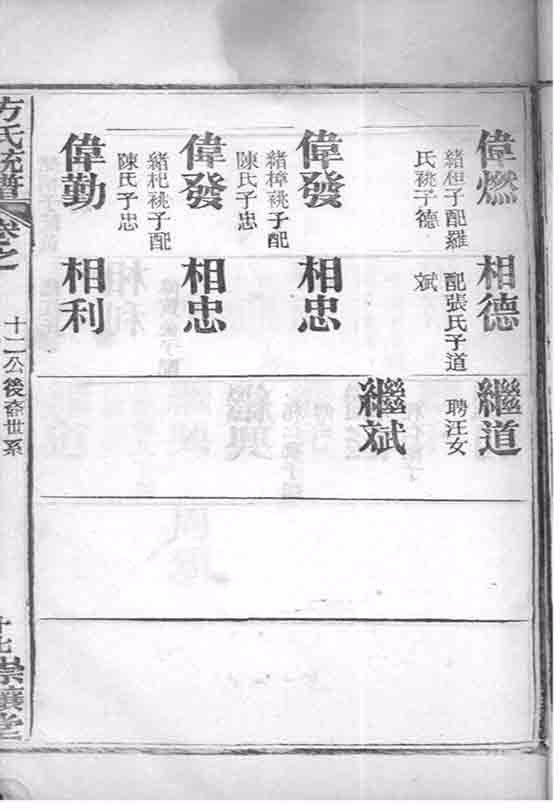 偉燃
緒柦子配羅
氏祧子德
偉發
緒樟祧子配
陳氏子忠
偉發
緒杞祧子配
陳氏子忠
偉勤
相德
配張氏子道
斌
相忠
相忠
相利
繼道
聘汪女
繼斌
方氏統譜
卷之
十二公後畚世系
十七
崇讓堂